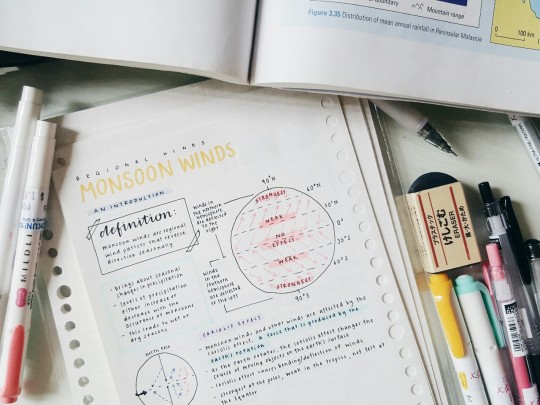 boundary
Mountain range
Figure 3.35 Distribution of mean annual rainfall in Peninsular Malaysia
0 100 km
REGIONAL WINDS
MONSOON WINDS
AN INTRODUCTION
definition:
monsoon winds are regional
wind pattern that reverse
direction seasonally
- brings about seasonal
changes in precipitation
- levels of precipitation
either increase or
decrease with the
occurrence of monsoons
- this leads to wet or
dry seasons
winds in
the northern
hemisphere
are deflected
to the
right
winds in
the southern
hemisphere
are deflected
to the left
90°N
60°N
30°N
0°
30°S
60°S
90°S
STRONGEST
WEAK
NO
EFFECT
WEAK
STRONGEST
CORIOLIS EFFECT
monsoon and other winds are affected by the
coriolis effect, a force that is produced by the
earth's rotation
- as the earth rotates, the coriolis effect changes the
course of moving objects on the earth's surface
- coriolis effect causes bending/deflection of winds
- strongest at the poles, weak in the tropics, not felt at
the equator
NORTH POLE
プラスチック
けしごむ
ERASER
MILDLI